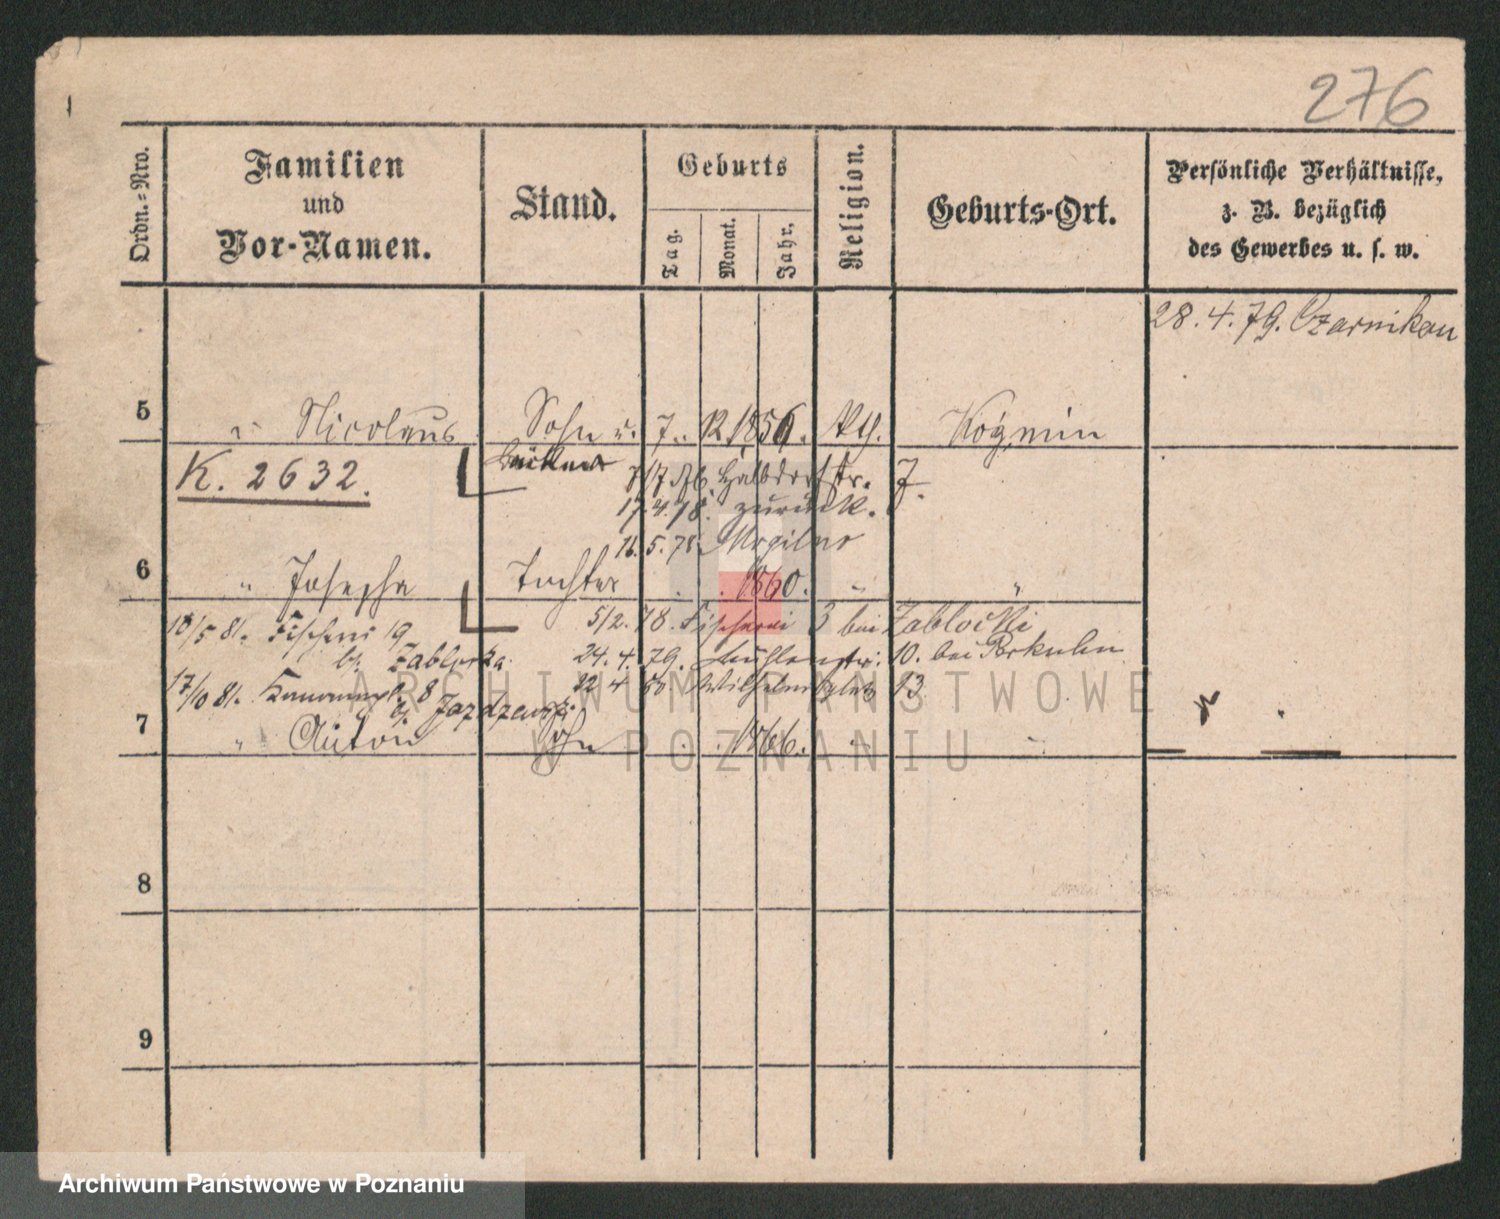 276
Ordn.-Nro.
Familien
und
Vor-Namen.
Stand.
Geburts
Tag.
Monat.
Jahr.
Religion.
Geburts-Ort.
Persönliche Verhältnisse,
z. B. bezüglich
des Gewerbes u. s. w.
28.4.79. Czarnikau
5 " Nicolaus Sohn u. 7. 1856. Kth. Kozmin
K. 2632.
7/7 76 Halbdorfstr. 7.
17.4.78. zurück.
16.5.78 Mogilno
6 " Josepha Tochter . . 1860. " "
5/2.78. Fischerei 3 bei Zablocki
18/5 81. Fischerei 19
b. Zablocka
24.4.79. Mühlenstr. 10. bei
17/10 81. 8
22 4 80. Wilhelmsplatz 13
b. Jazdzewski
7 " Anton Sohn . . 1866. " "
8
9
ARCHIWUM PAŃSTWOWE
W POZNANIU
Archiwum Państwowe w Poznaniu